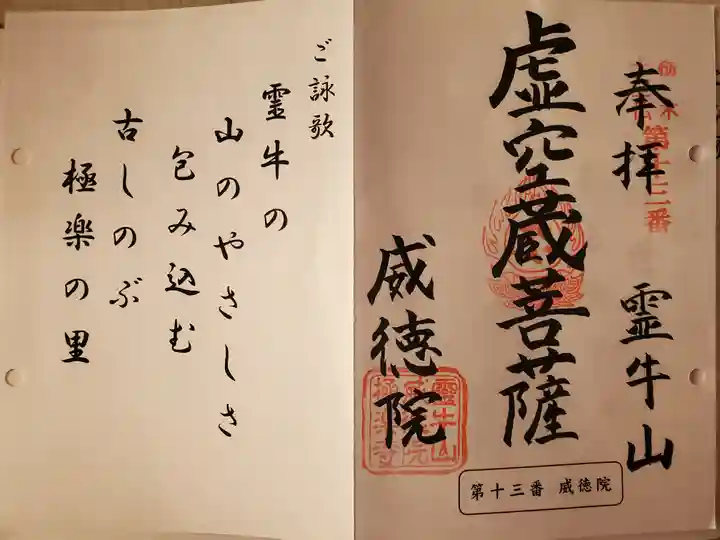 奉拝
霊牛山
第十三番
虚空蔵菩薩
威徳院
霊牛山
威徳院
極楽寺
第十三番 威徳院
ご詠歌
霊牛の
山のやさしさ
包み込む
古しのぶ
極楽の里